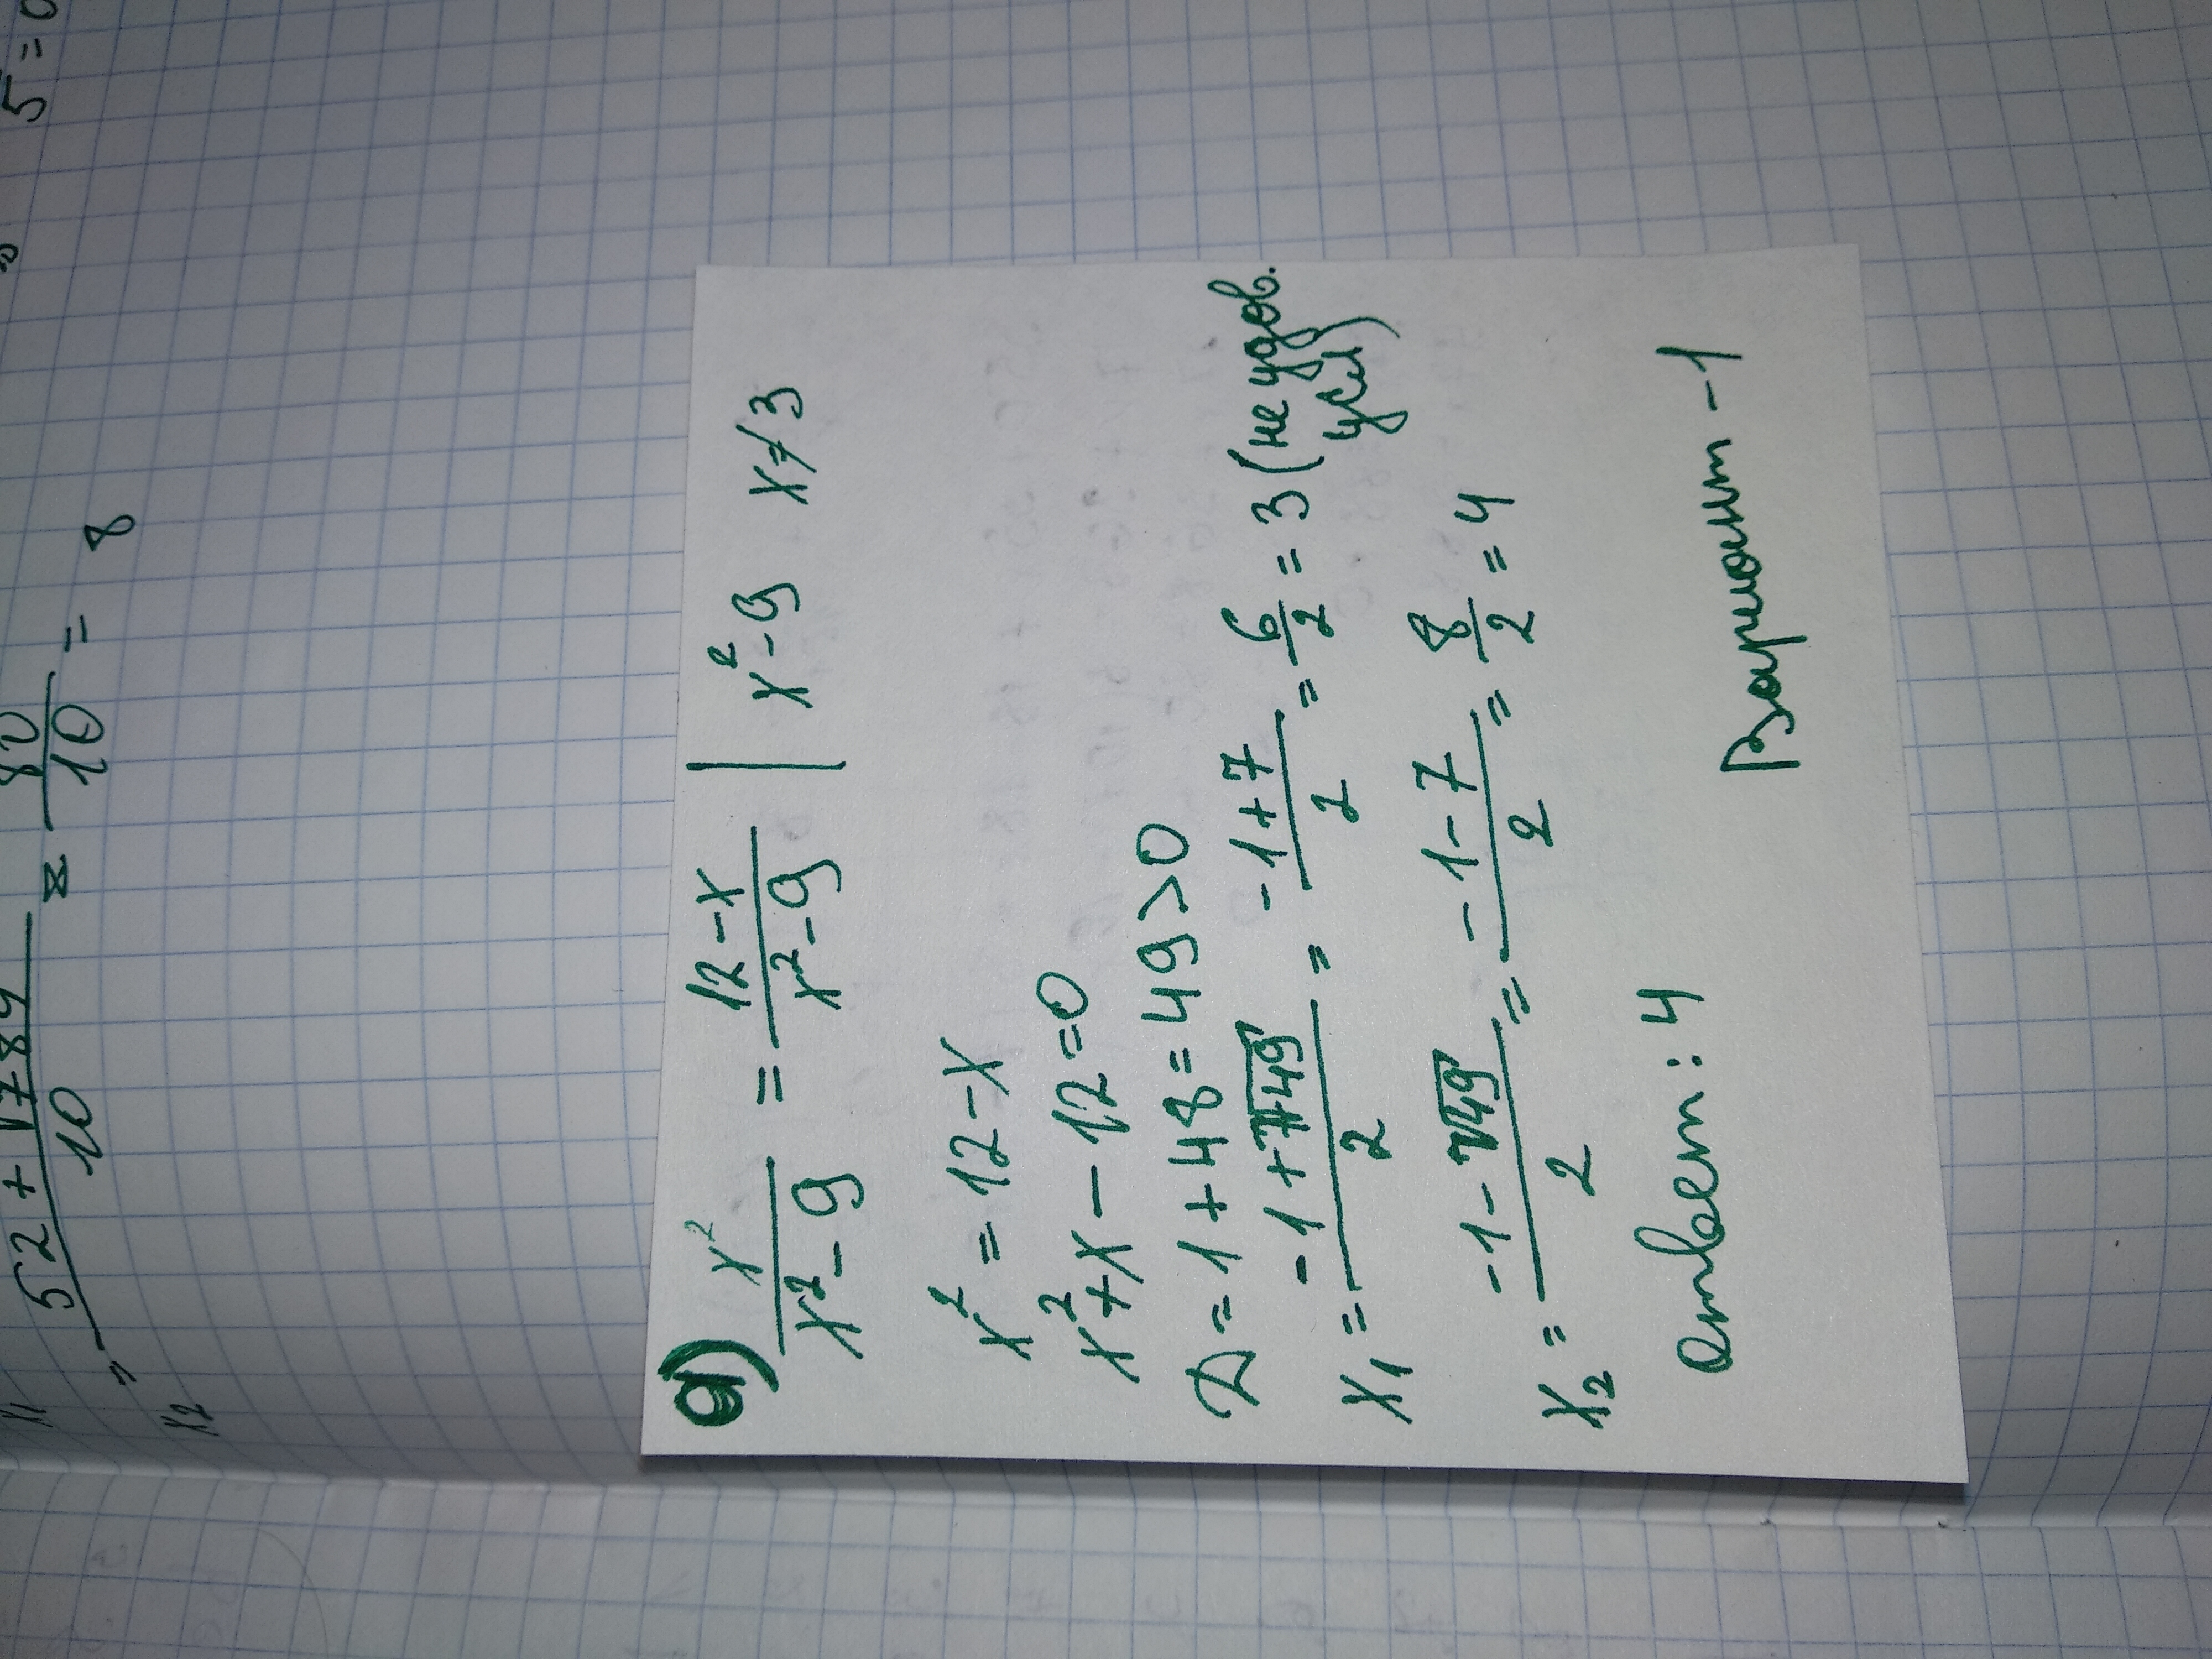 5 = 0
x₁ = (52 + √784)/10 = 80/10 = 8
x₂
а) x²/(x² - 9) = (12 - x)/(x² - 9) | x² - 9 x ≠ 3
x² = 12 - x
x² + x - 12 = 0
D = 1 + 48 = 49 > 0
x₁ = (-1 + √49)/2 = (-1 + 7)/2 = 6/2 = 3 (не удов. усл)
x₂ = (-1 - √49)/2 = (-1 - 7)/2 = 8/2 = 4
ответ: 4
Вариант - 1